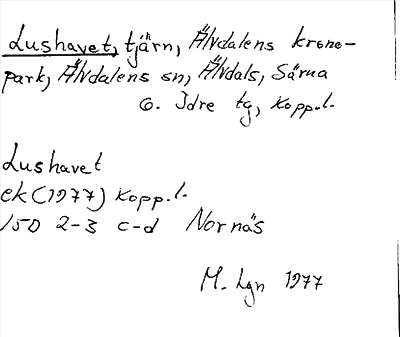 Lushavet, tjärn, Älvdalens krono-
park, Älvdalens sn, Älvdals, Särna
o. Idre tg, Kopp.l.
Lushavet
ek (1977) Kopp.l.
150 2-3 c-d Nornäs
M. Lgn 1977